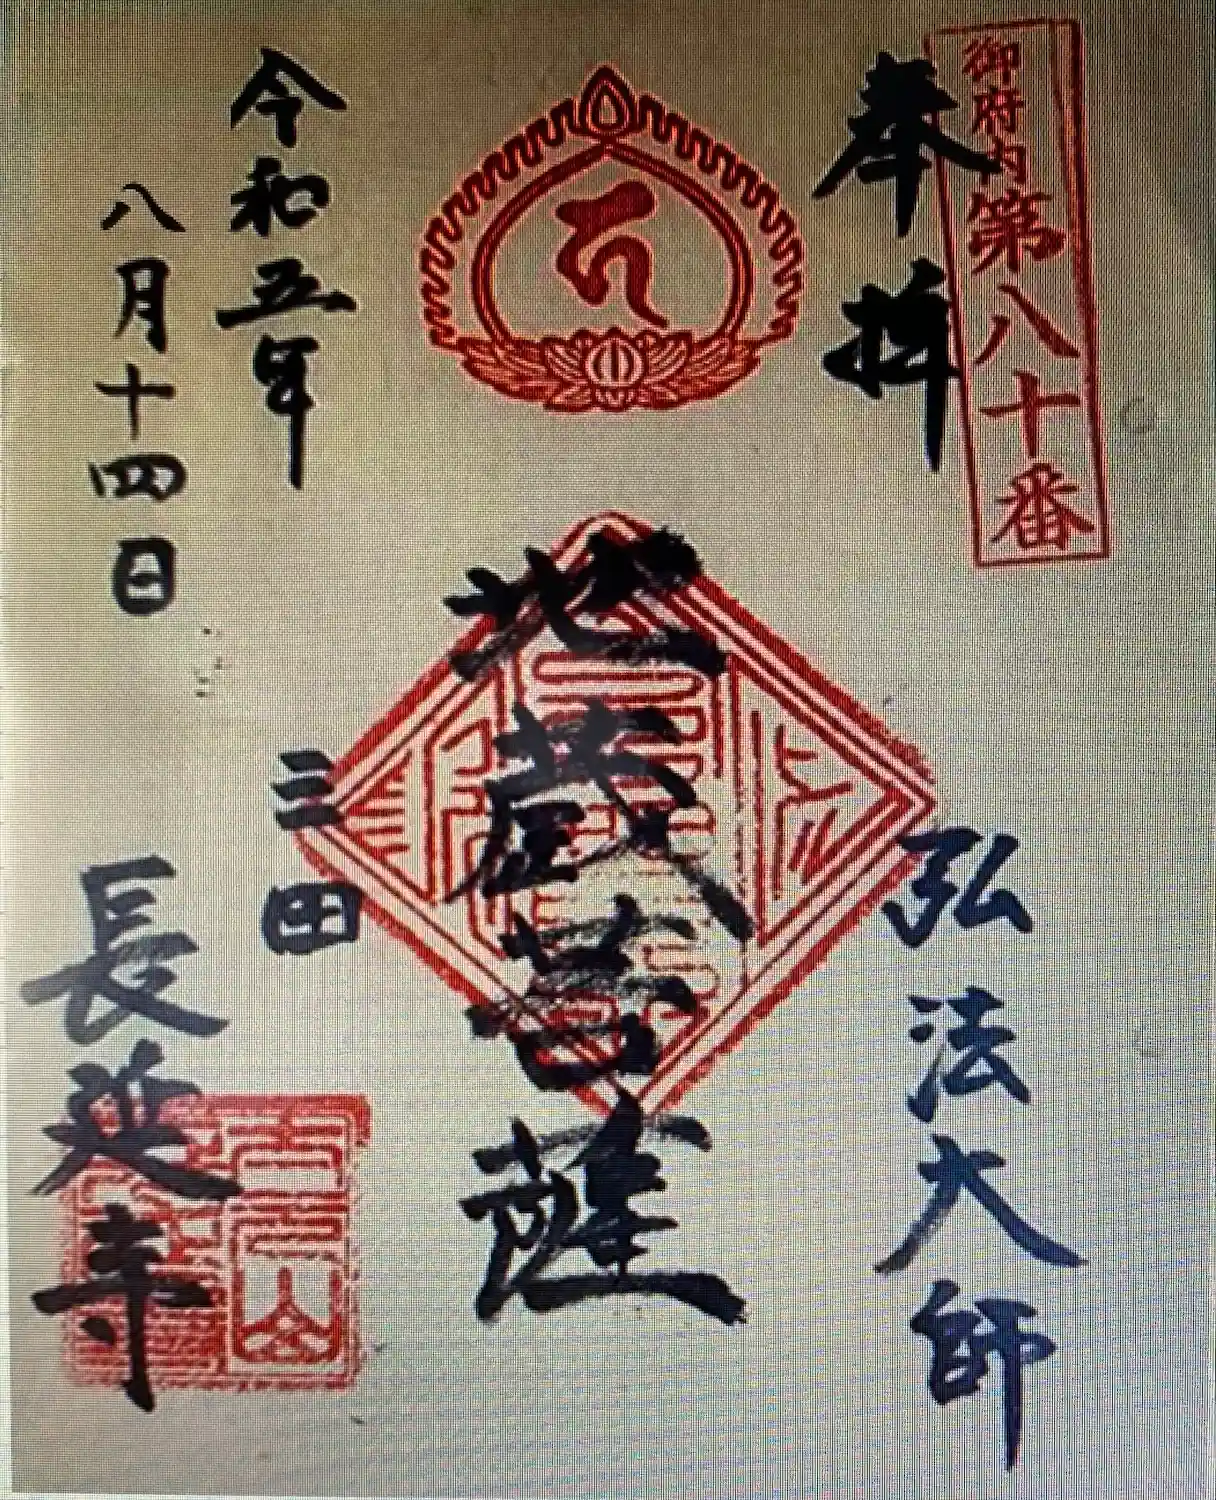 御府内第八十番
奉拝
弘法大師
地蔵菩薩
三田
長延寺
令和五年
八月十四日